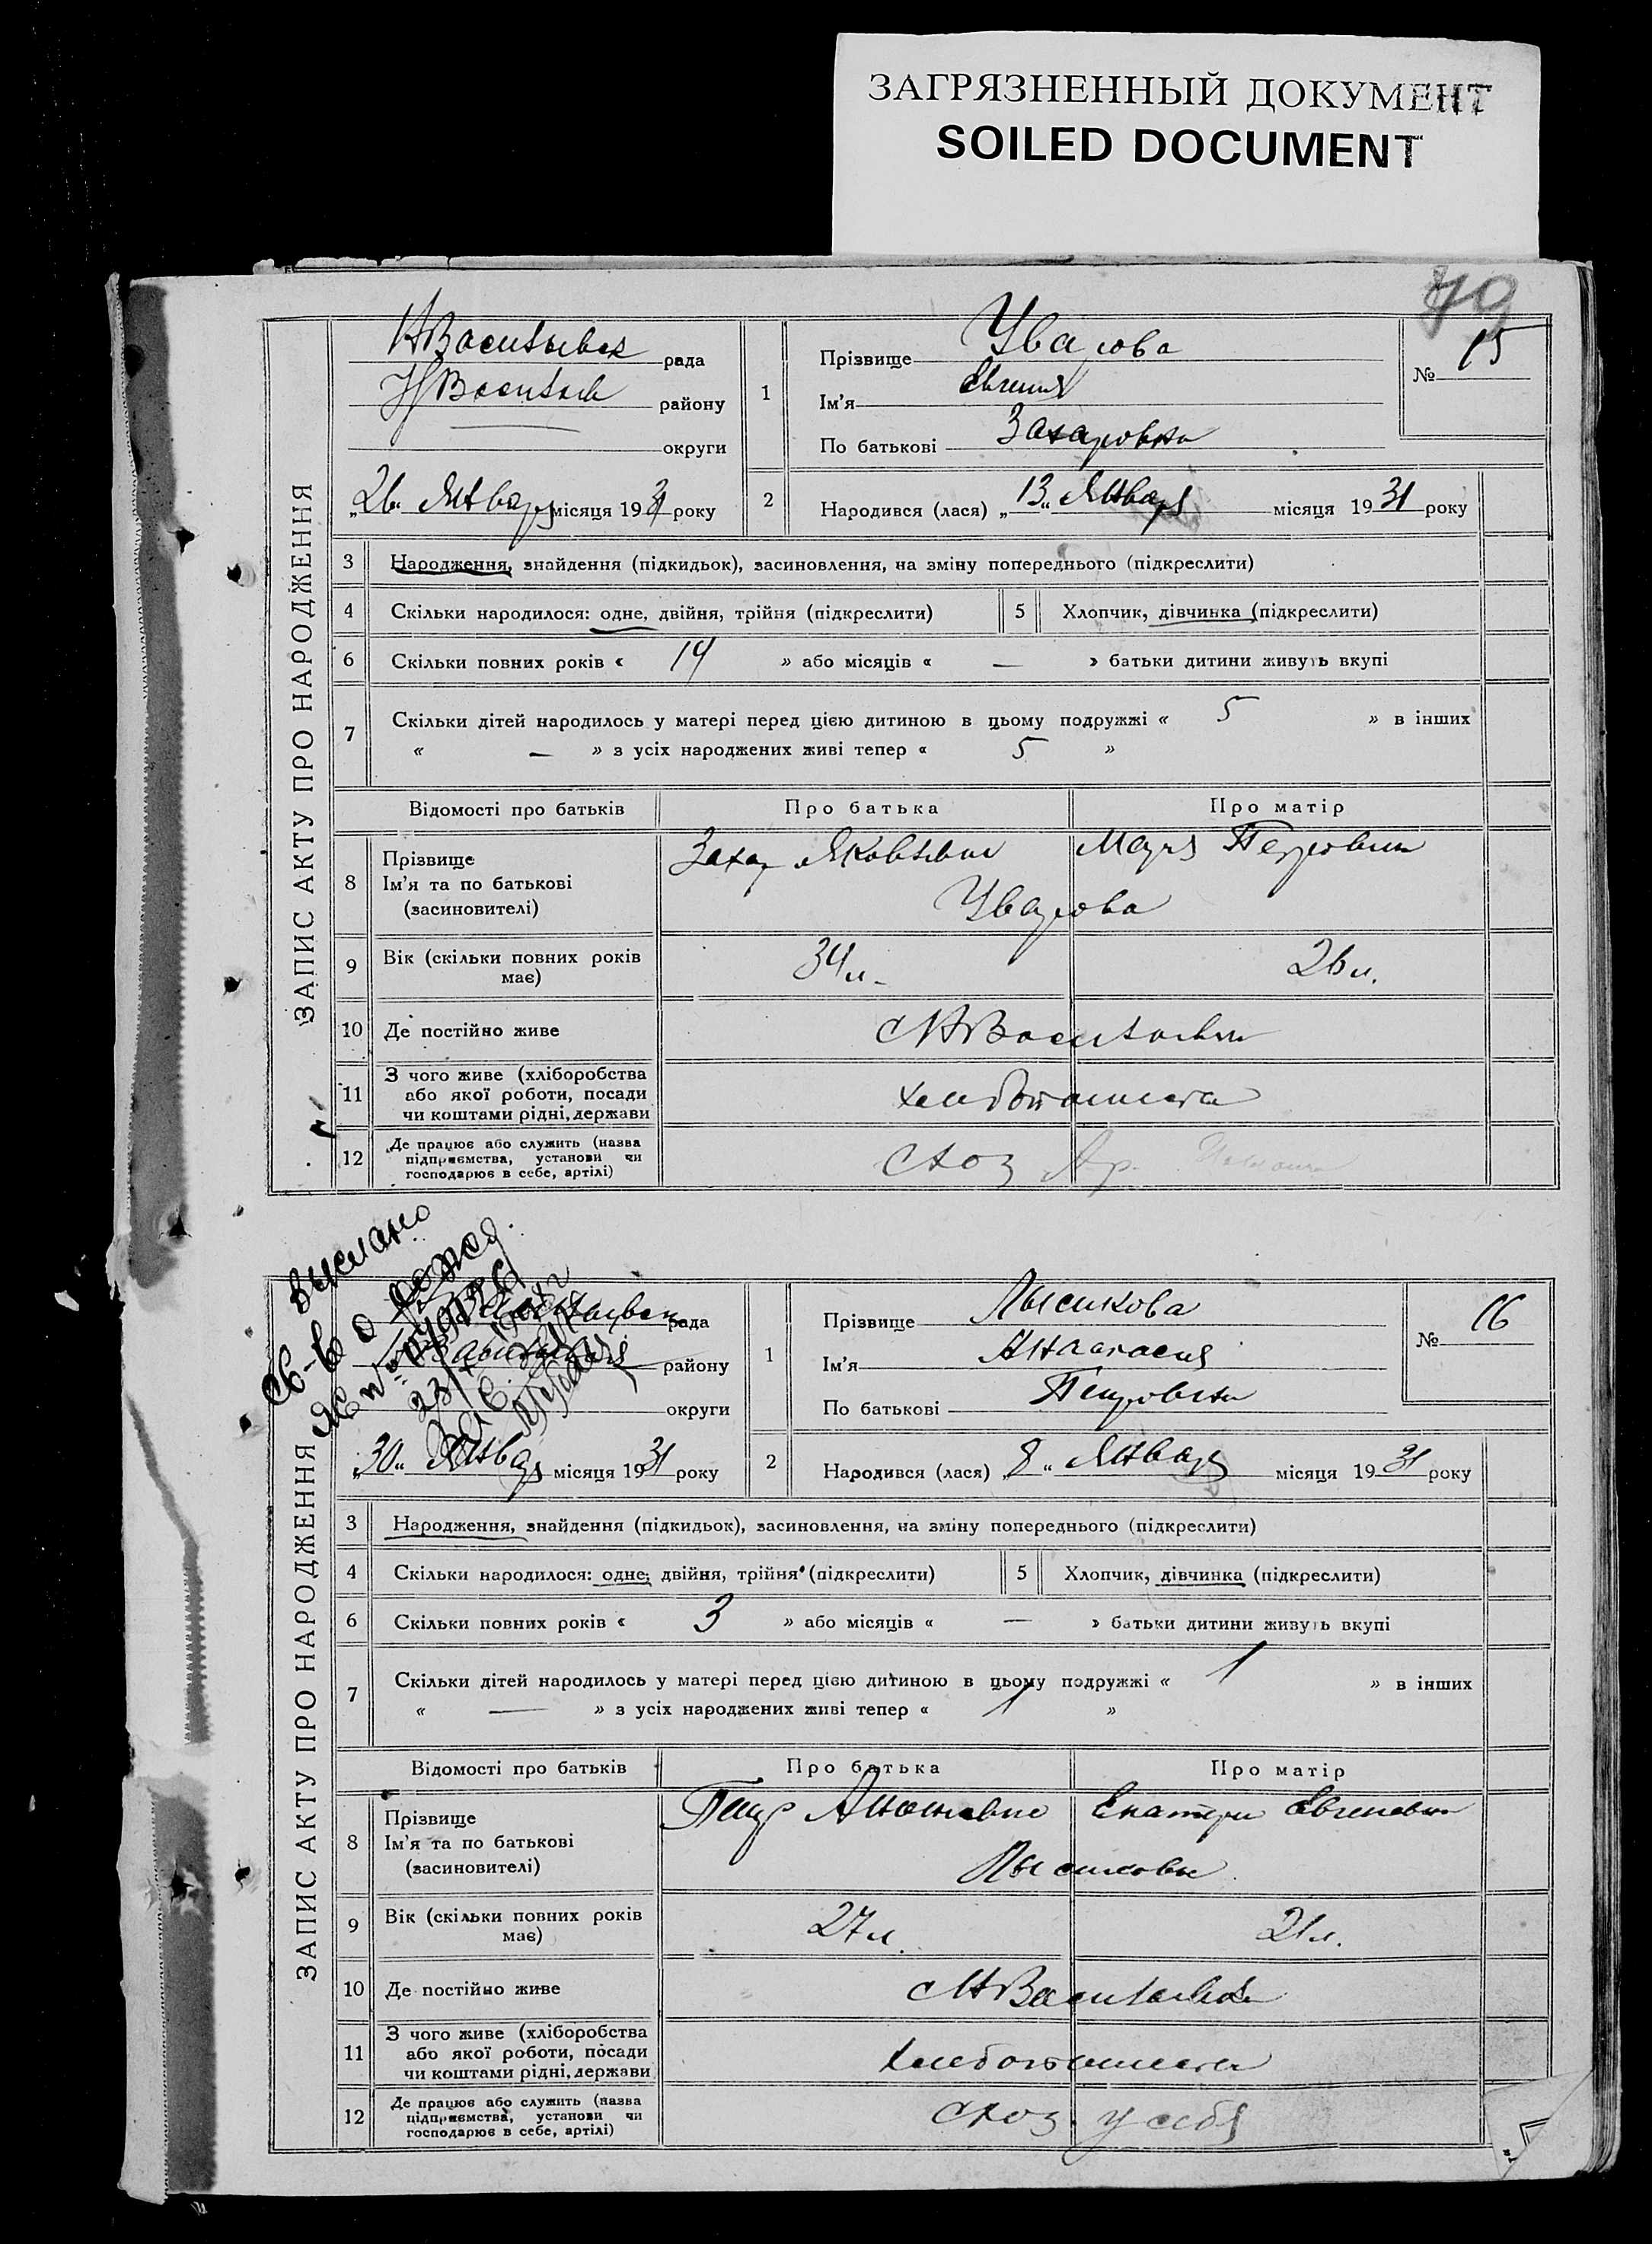 ЗАГРЯЗНЕННЫЙ ДОКУМЕНТ
SOILED DOCUMENT
ЗАПИС АКТУ ПРО НАРОДЖЕННЯ
рада
району
округи
„26“ Января місяця 1931 року
1
Прізвище Уварова
Ім'я Евгения
По батькові Захаровна
№ 15
2
Народився (лася) „13“ Января місяця 1931 року
3 Народження, знайдення (підкидьок), засиновлення, на зміну попереднього (підкреслити)
4 Скільки народилося: одне, двійня, трійня (підкреслити)
5 Хлопчик, дівчинка (підкреслити)
6 Скільки повних років « 14 » або місяців « — » батьки дитини живуть вкупі
7 Скільки дітей народилось у матері перед цією дитиною в цьому подружжі « 5 » в інших
« — » з усіх народжених живі тепер « 5 »
Відомості про батьків Про батька Про матір
8
Прізвище
Ім'я та по батькові
(засиновителі)
Захар Яковлевич
Петровна
Уварова
9 Вік (скільки повних років
має)
34 л.
26 л.
10 Де постійно живе
11 З чого живе (хліборобства
або якої роботи, посади
чи коштами рідні, держави
12 Де працює або служить (назва
підприємства, установи чи
господарює в себе, артілі)
выслано
св-во о рожд.
ЗАПИС АКТУ ПРО НАРОДЖЕННЯ
рада
району
округи
„30“ Январ місяця 1931 року
1
Прізвище Лысикова
Ім'я Анастасия
По батькові Петровна
№ 16
2
Народився (лася) „8“ Января місяця 1931 року
3 Народження, знайдення (підкидьок), засиновлення, на зміну попереднього (підкреслити)
4 Скільки народилося: одне, двійня, трійня (підкреслити)
5 Хлопчик, дівчинка (підкреслити)
6 Скільки повних років « 3 » або місяців « — » батьки дитини живуть вкупі
7 Скільки дітей народилось у матері перед цією дитиною в цьому подружжі « 1 » в інших
« — » з усіх народжених живі тепер « 1 »
Відомості про батьків Про батька Про матір
8
Прізвище
Ім'я та по батькові
(засиновителі)
Петр
Екатери
Лысиковы
9 Вік (скільки повних років
має)
27 л.
21 л.
10 Де постійно живе
11 З чого живе (хліборобства
або якої роботи, посади
чи коштами рідні, держави
12 Де працює або служить (назва
підприємства, установи чи
господарює в себе, артілі)
схоз. у себя